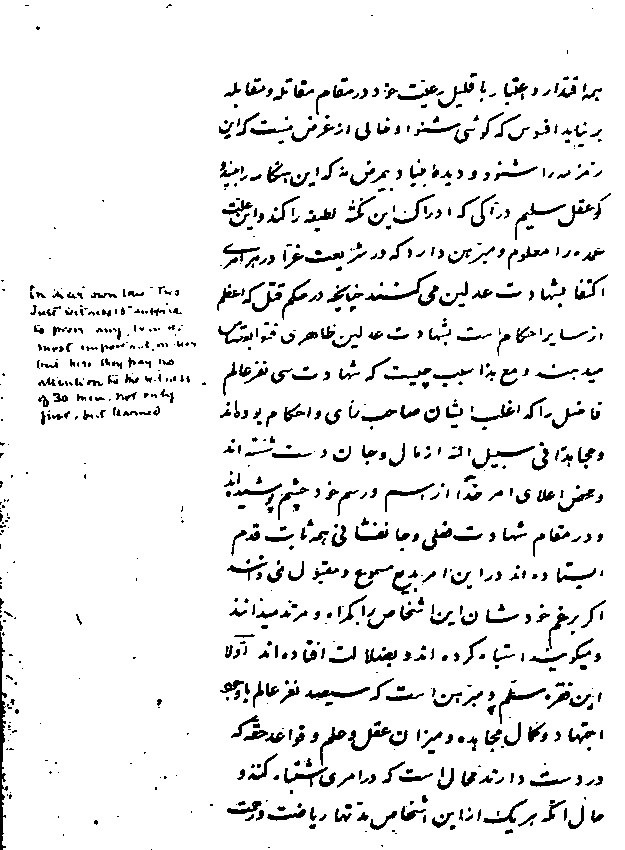 همه اقتدار و اعتبار با قلیل رعیت خود در مقام مقاتله و مقابله
بر نیاید افسوس که گوشی شنوا و خالی از غرض نیست که این
زمزمه را شنود و دیده بینا و بیمرض نه که این هنگامه را بیند
کو عقل سلیم درّاکی که ادراک این نکتۀ لطیفه را کند و این
عمده را معلوم و مبرهن دارد که در شریعت غرّا در هر امری
اکتفا بشهادت عدلین می کنند چنانچه در حکم قتل که اعظم
از سایر احکام است بشهادت عدلین ظاهری فتوا بقتل
میدهند و مع هذا سبب چیست که شهادت سی نفر عالم
فاضل را که اغلب ایشان صاحب رأی و احکام بوده‌اند
و مجاهدًا فی سبیل الله از مال و جان دست شسته اند
و محض اعلای امر خدا از اسم و رسم خود چشم پوشیده‌اند
و در مقام شهادت فعلی و جانفشانی همه ثابت قدم
ایستاده اند در این امر بدیع مسموع و مقبول نمی دانند
اگر برغم خودشان این اشخاص را گمراه و مرتد میدانند
و میگویند اشتباه کرده اند و بضلالت افتاده اند اولا
این فقره مسلّم و مبرهن است که سیصد نفر عالم با وجود
اجتهاد و کمال مجاهده و میزان عقل و علم و قواعد حقّه که
در دست دارند محال است که در امری اشتباه کنند و
حال آنکه هر یک از این اشخاص مدتها ریاضت و زحمت
In their own law two
just witnesses suffice
to prove any, even the
most important, matter
but here they pay no
attention to the witness
of 30 men, not only
just, but learned